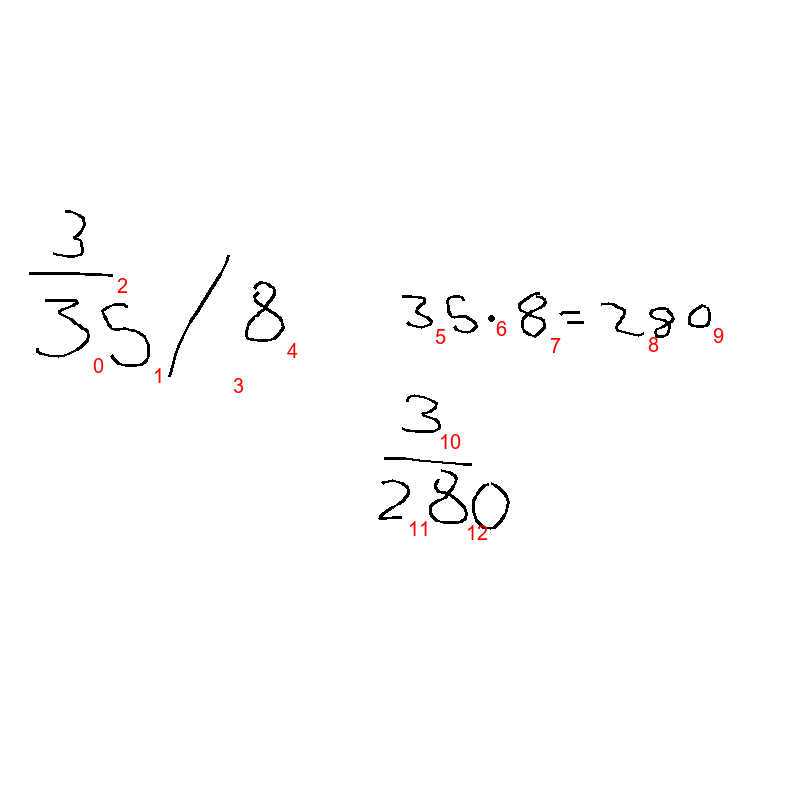 3
2
35 / 8
0 1 3 4
35 · 8 = 280
5 6 7 8 9
3
10
280
11 12